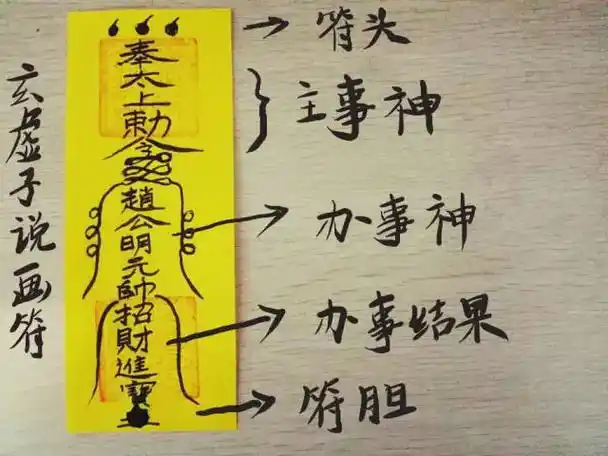 玄虚子说画符
奉太上敕令
趙公明元帥招財進寶
符头
主事神
办事神
办事结果
符胆